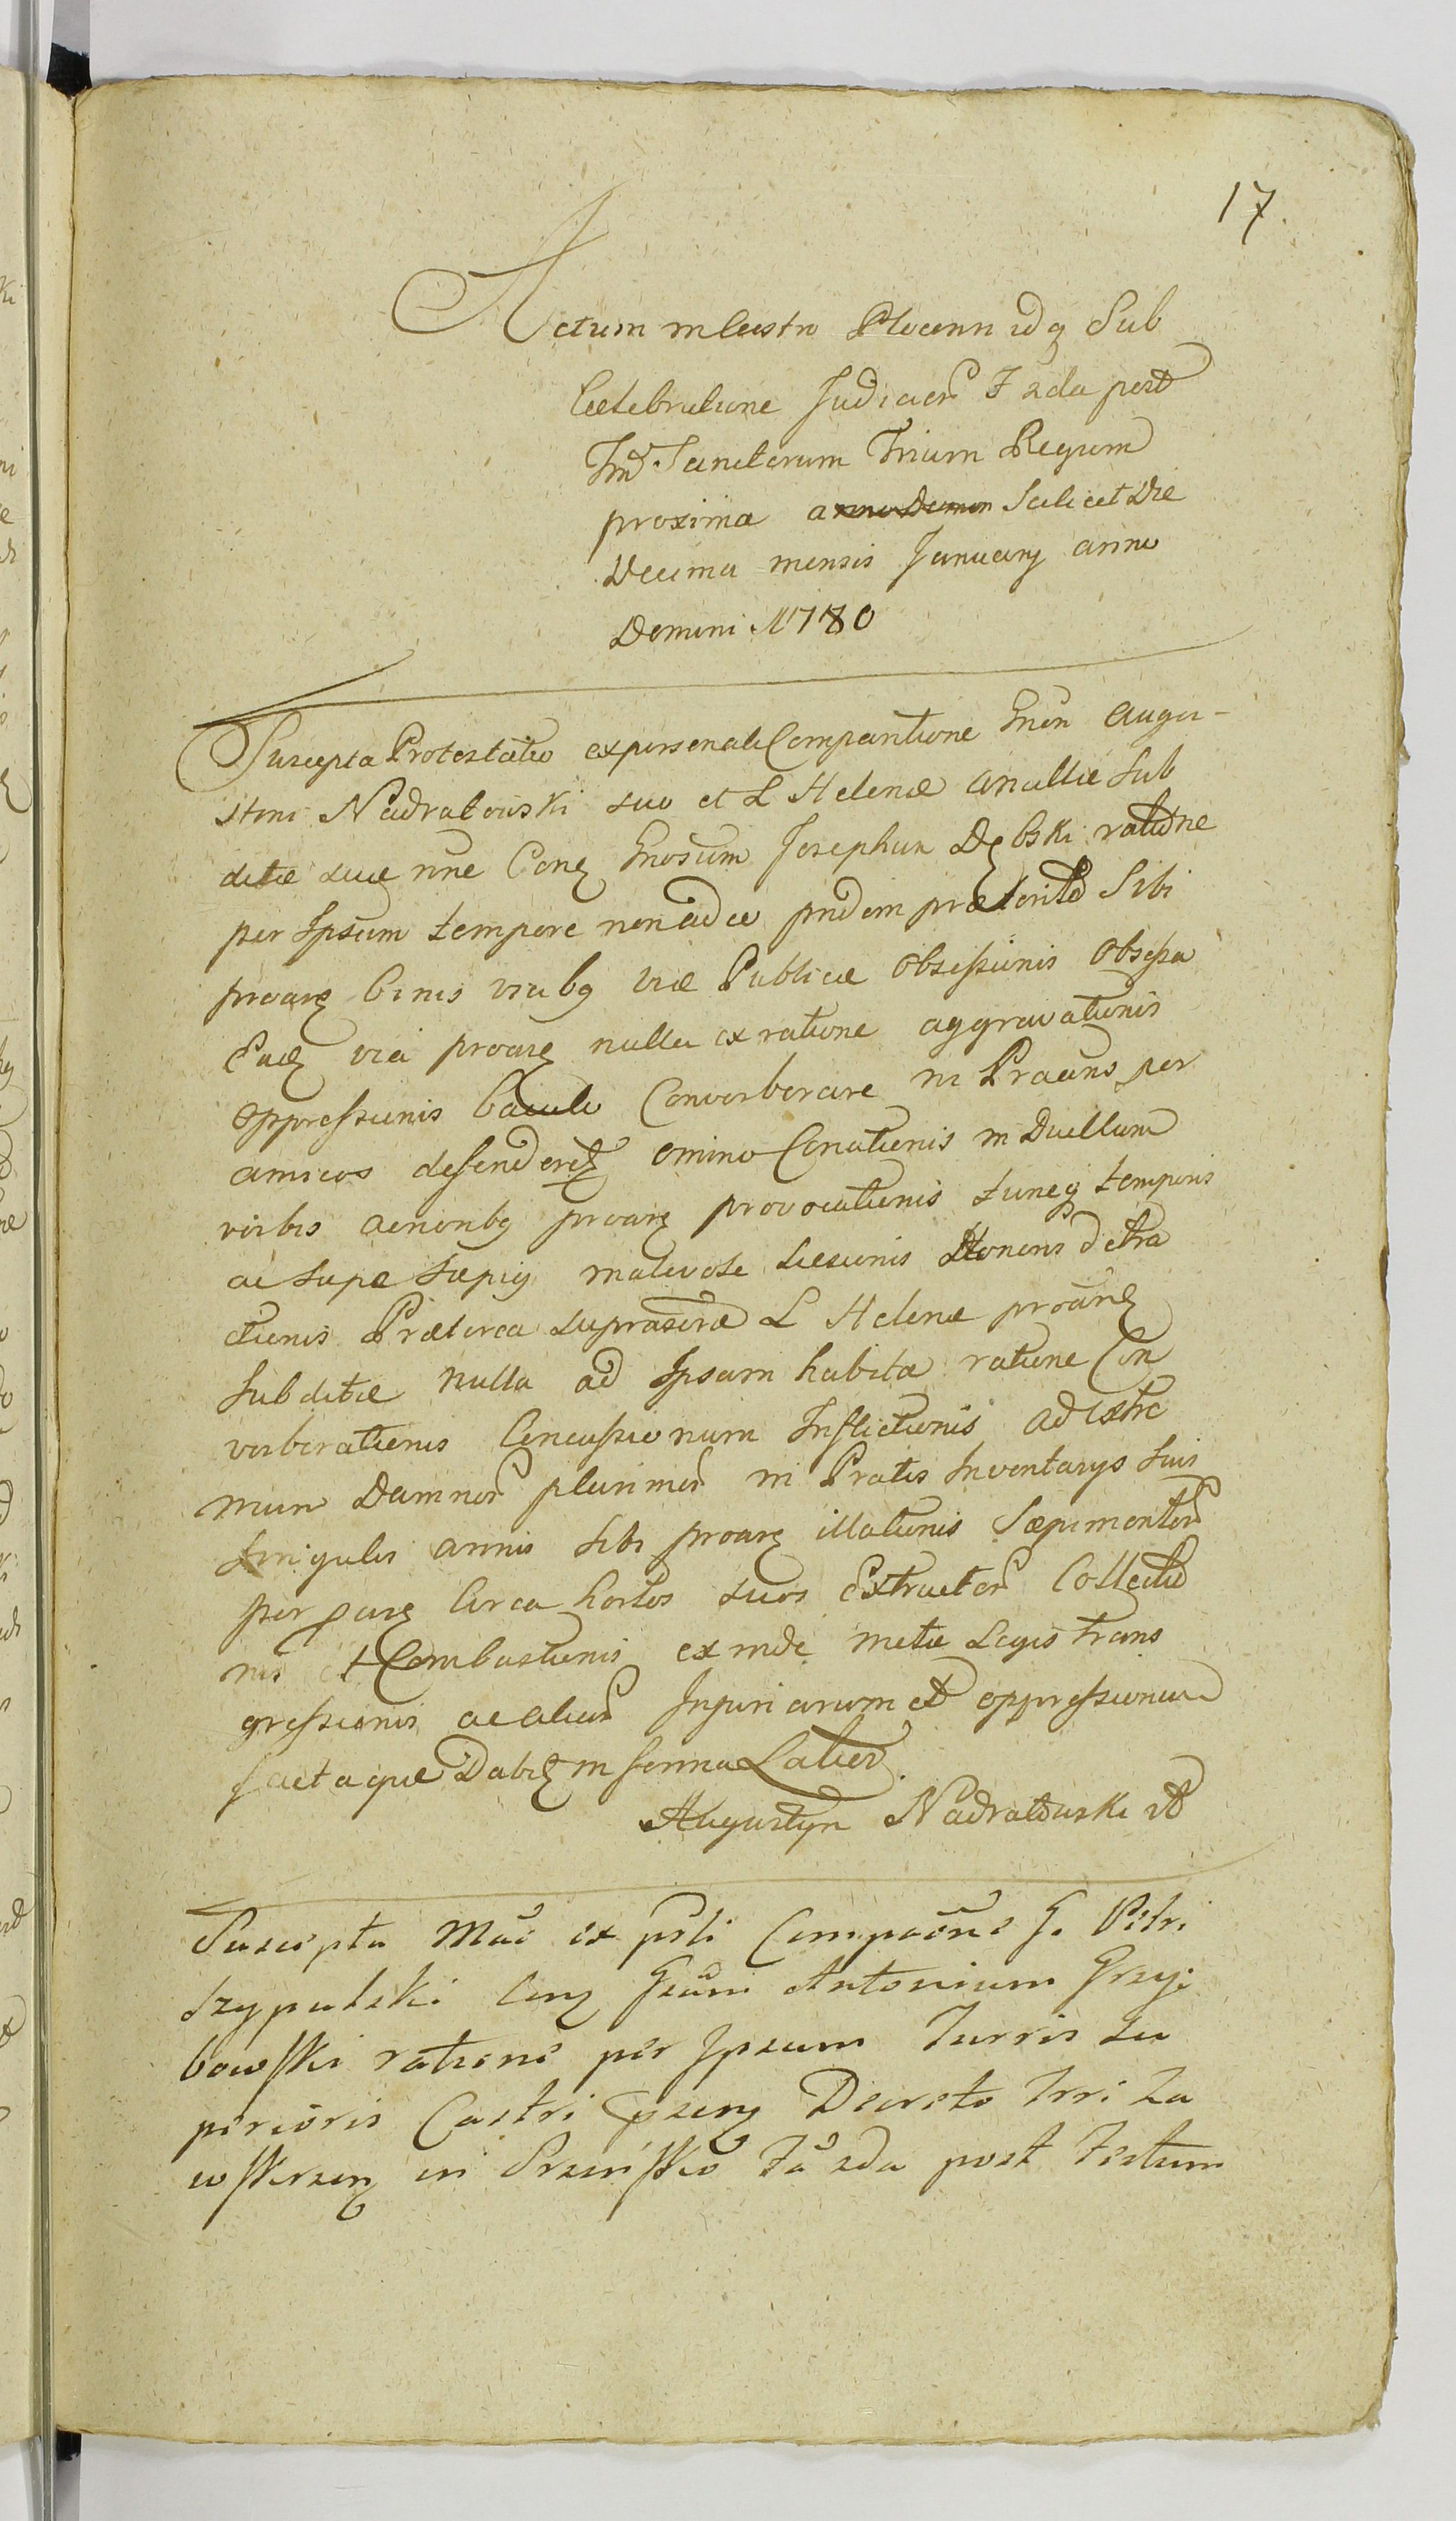 17.
Actum in Castro Plocenn idq Sub
Celebratione Judicior F 2da post
Fm Sanctorum Trium Regum
proxima anno Domin Scilicet Die
Decima mensis January anno
Domini M780
Suscepta Protestatio expersonali Comparitione Gnen Augu-
stini Nadratowski suo et L Helenæ ancillæ Sub
ditæ suæ nne Conq Gnosum Josephum Dębski ratione
per Ipsum tempore non adeo pridem præterito Sibi
proarq binis viabq viæ Publicæ Obsessionis Obsessa
Eadq via proarq nulla ex ratione aggravationis
oppressionis baculo Converberare ni Praesens per
amicos defenderetq omino Conationis in Duellum
virbis acrioribq proarq provocationis tuncq temporis
ac sæpe sæpiq malevole Læsionis Honoris detra
ctionis Præterea suprascræ L Helenæ proarnq
Subditæ nulla ad Ipsam habita ratione Con
verberationis Concussionum Inflictionis ad extre
mum Damnor plurimor in Pratis Inventarys suis
singulis annis sibi proarq illationis Sæpimentor
per parq Circa hortos suos Extructor Collectio
nis et Combustionis exinde metæ Legis trans
gressionis ac alior Injuriarum et oppressionum
factaque Dabitq in forma Latiori
Augustyn Nadratowski
Suscepta Mań ex psli Compaōne G. Petri
Szypulski Conq Gsum Antonium Grzy
bowski ratione per Ipsum Turris Su
perioris Castri psenq Decreto Trri Za
wskrsenq in Srzeńsko Fa 2da post Festum